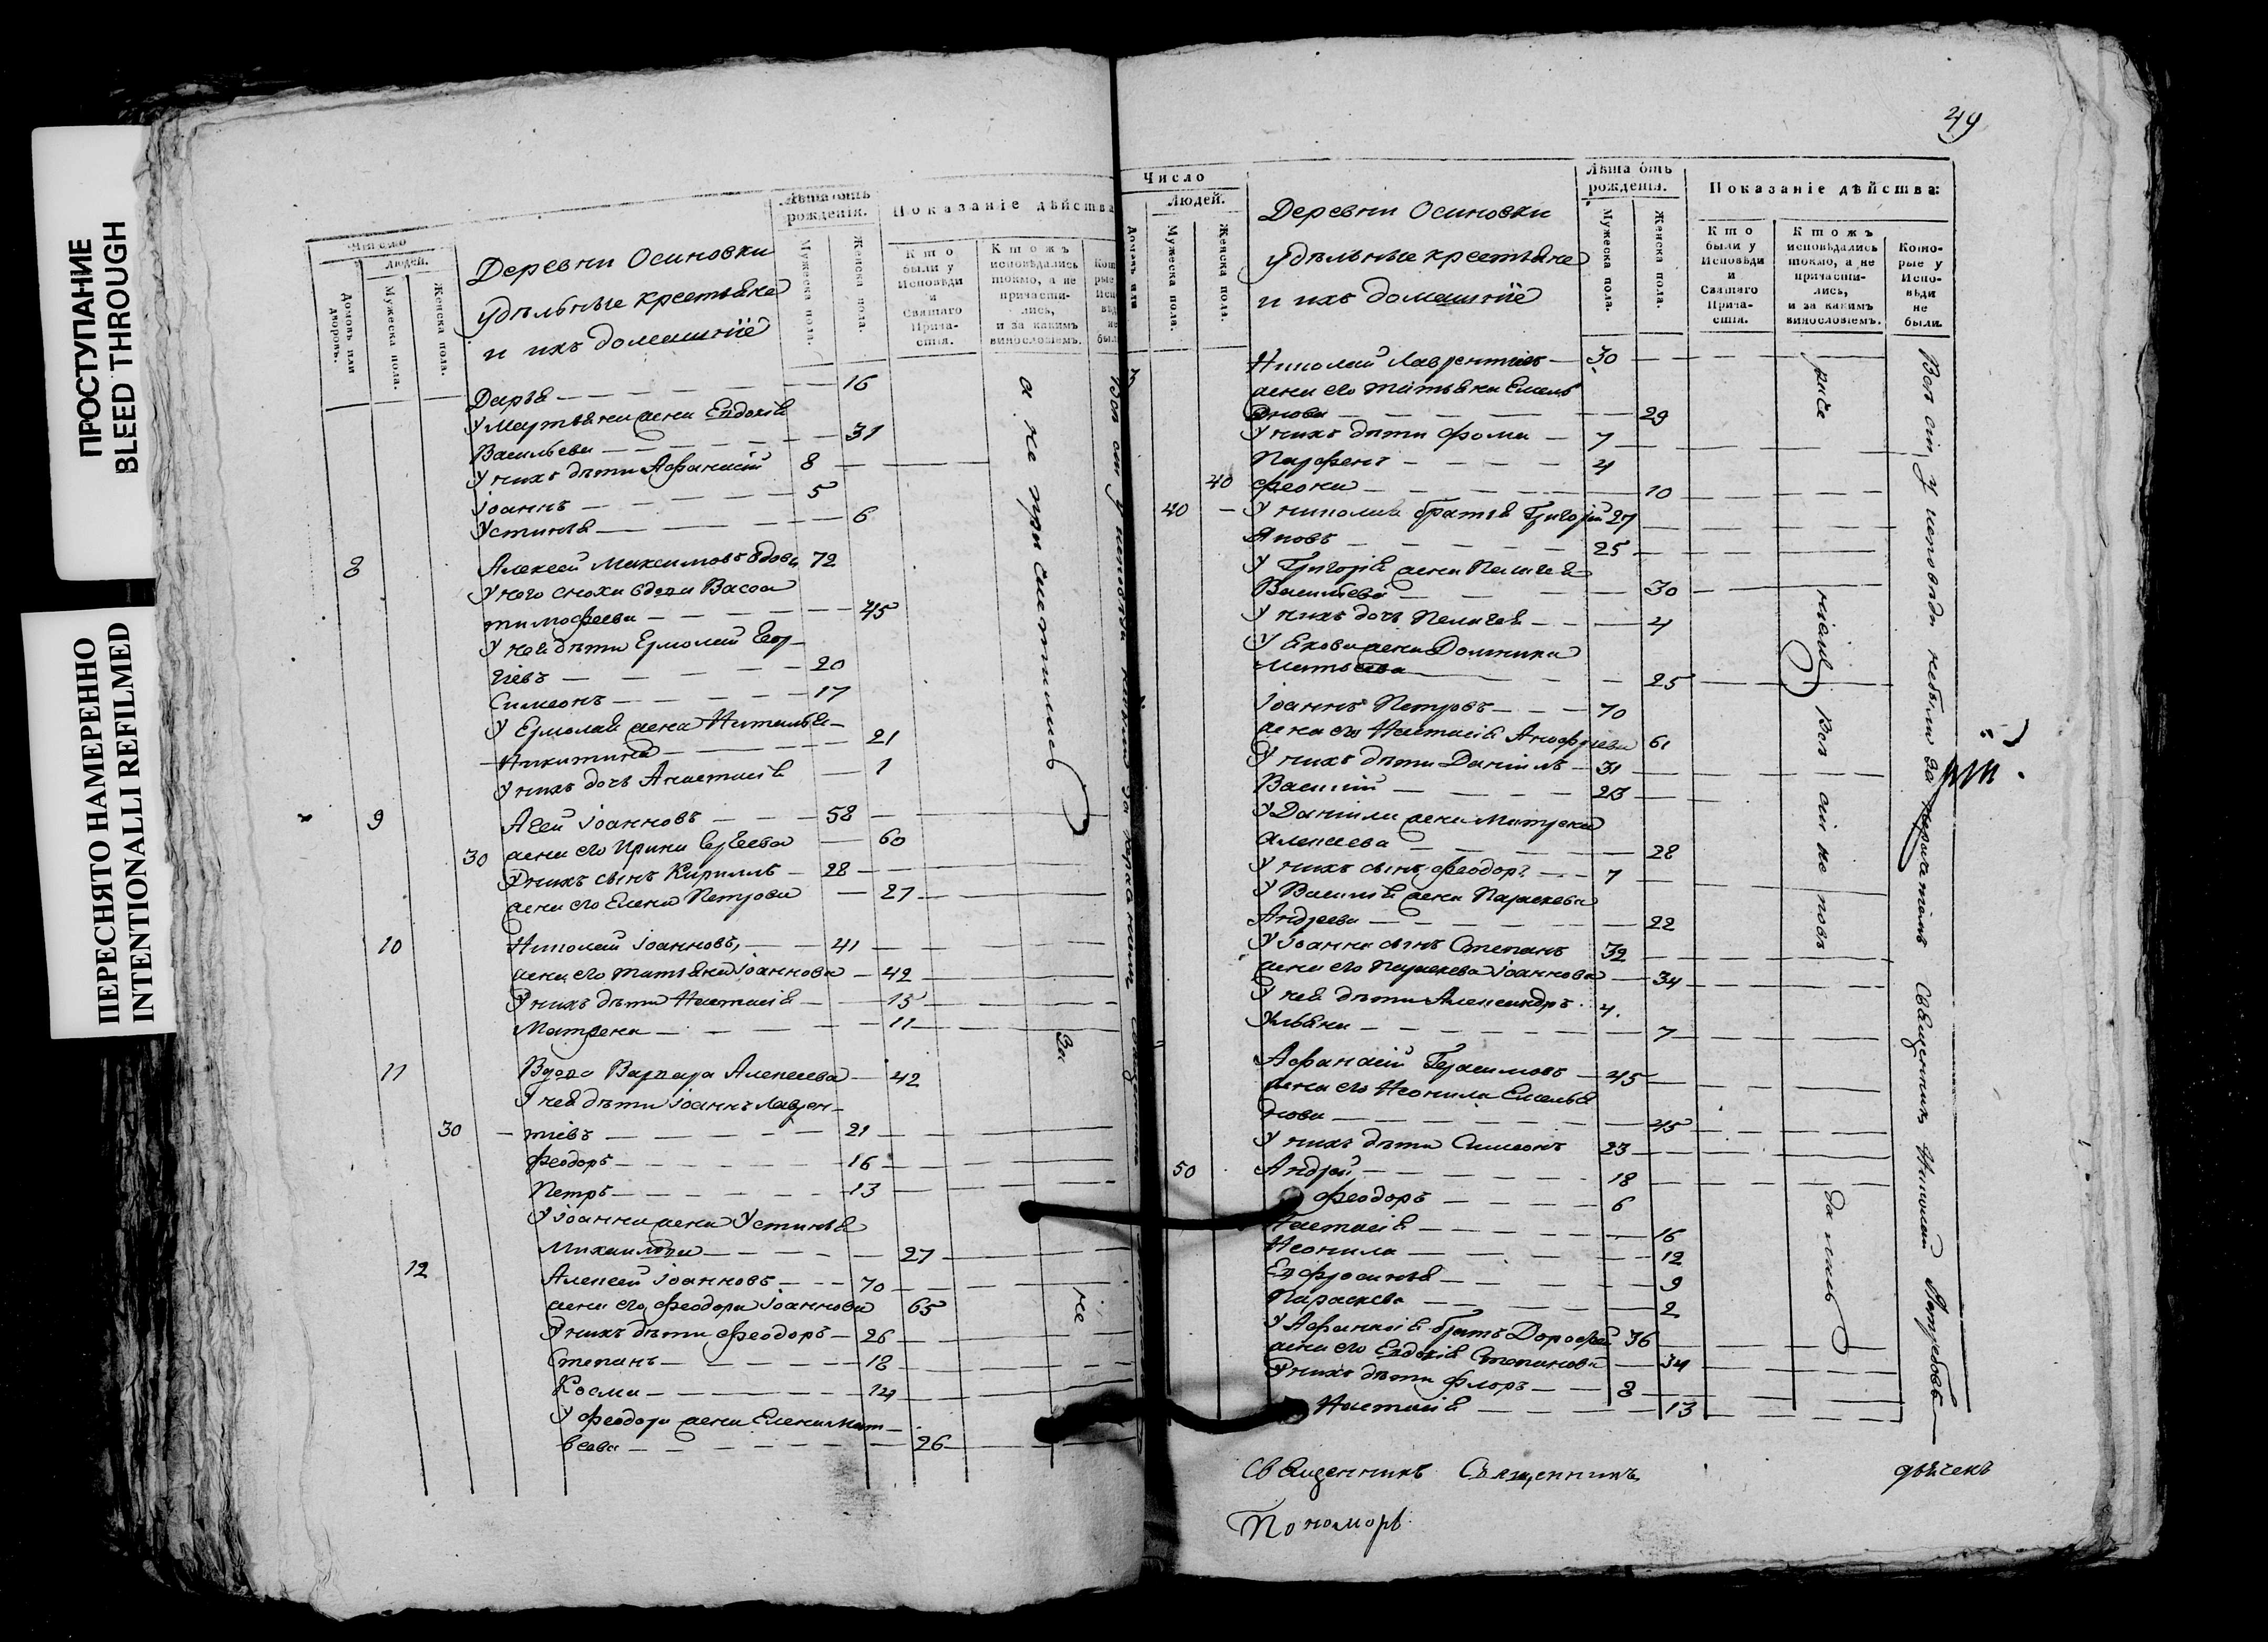 ПРОСТУПАНИЕ
BLEED THROUGH
ПЕРЕСНЯТО НАМЕРЕННО
INTENTIONALLI REFILMED
Число
Людей.
Домовъ или дворовъ.
Мужеска пола.
Женска пола.
Деревни Осиновки
удѣльные крестьяне
и ихъ домашніе
Лѣта отъ рожденія.
Мужеска пола.
Женска пола.
Показаніе дѣйства
Кто были у Исповѣди и Святаго Причастія.
Ктожъ исповѣдались токмо, а не причастились, и за какимъ винословіемъ.
Дарья 16
У Мартьяна жена Евдокія
Васильева 31
У нихъ дѣти Афанасій 8
Іоаннъ 5
Устинья 6
8 Алексей Максимовъ вдовъ 72
У него сноха вдова Васса
тимофеева 45
У нея дѣти Ермолай Геор-
гіевъ 20
Симеонъ 17
У Ермолая жена Наталья
Никитина 21
У нихъ дочь Анастасія 1
9 Іоанновъ 58
30 жена его Ирина 60
У нихъ сынъ Кириллъ 28
жена его Елена Петрова 27
10 Николай Іоанновъ 41
жена его татьяна Іоаннова 42
У нихъ дѣти Настасія 15
Матрена 11
11 Вдова Варвара Алексеева 42
У нея дѣти Іоаннъ Лаврен-
30 тіевъ 21
Феодоръ 16
Петръ 13
У Іоанна жена Устинья
Михаилова 27
12 Алексей Іоанновъ 70
жена его Феодора Іоаннова 65
У нихъ дѣти Феодоръ 26
Степанъ 18
Косма 14
У Феодора жена Елена Мат-
веева 26
а не причастились
49
Число
Людей.
Домовъ или
Мужеска пола.
Женска пола.
Деревни Осиновки
удѣльные крестьяне
и ихъ домашніе
Лѣта отъ рожденія.
Мужеска пола.
Женска пола.
Показаніе дѣйства:
Кто были у Исповѣди и Святаго Причастія.
Ктожъ исповѣдались токмо, а не причастились, и за какимъ винословіемъ.
Которые у Исповѣди не были.
Николай Лаврентіевъ 30
жена его татьяна Емель
янова 29
У нихъ дѣти Фома 7
Парфенъ 4
40 Феона 10
40 У николая братья Григорій 27
Яковъ 25
У Григорія жена Пелагея
Васильева 30
У нихъ дочь Пелагея 4
У Якова жена Домника
Матвеева 25
Іоаннъ Петровъ 70
жена его Настасія 61
У нихъ дѣти Даніилъ 31
Василій 23
У Даніила жена Матрена
Алексеева 28
У нихъ сынъ Феодоръ 7
У Василія жена Параскева
Андреева 22
У Іоанна сынъ Степанъ 32
жена его Параскева Іоаннова 34
У нея дѣти Александръ 4.
Ульяна 7
Афанасій Герасимовъ 45
жена его Неонила Емелья
нова 45
У нихъ дѣти Симеонъ 23
50 Андрей 18
Феодоръ 6
Настасія 16
Неонила 12
Евфросинья 9
Параскева 2
У Афанасія братъ Дорофей 36
жена его Евдокія Степанова 34
У нихъ дѣти Флоръ 8
Настасія 13
Всѣ сіи не повѣ
Всѣ сіи у исповѣди небыли за Священникъ Николай
Священникъ Священникъ
дьячекъ
Пономарь